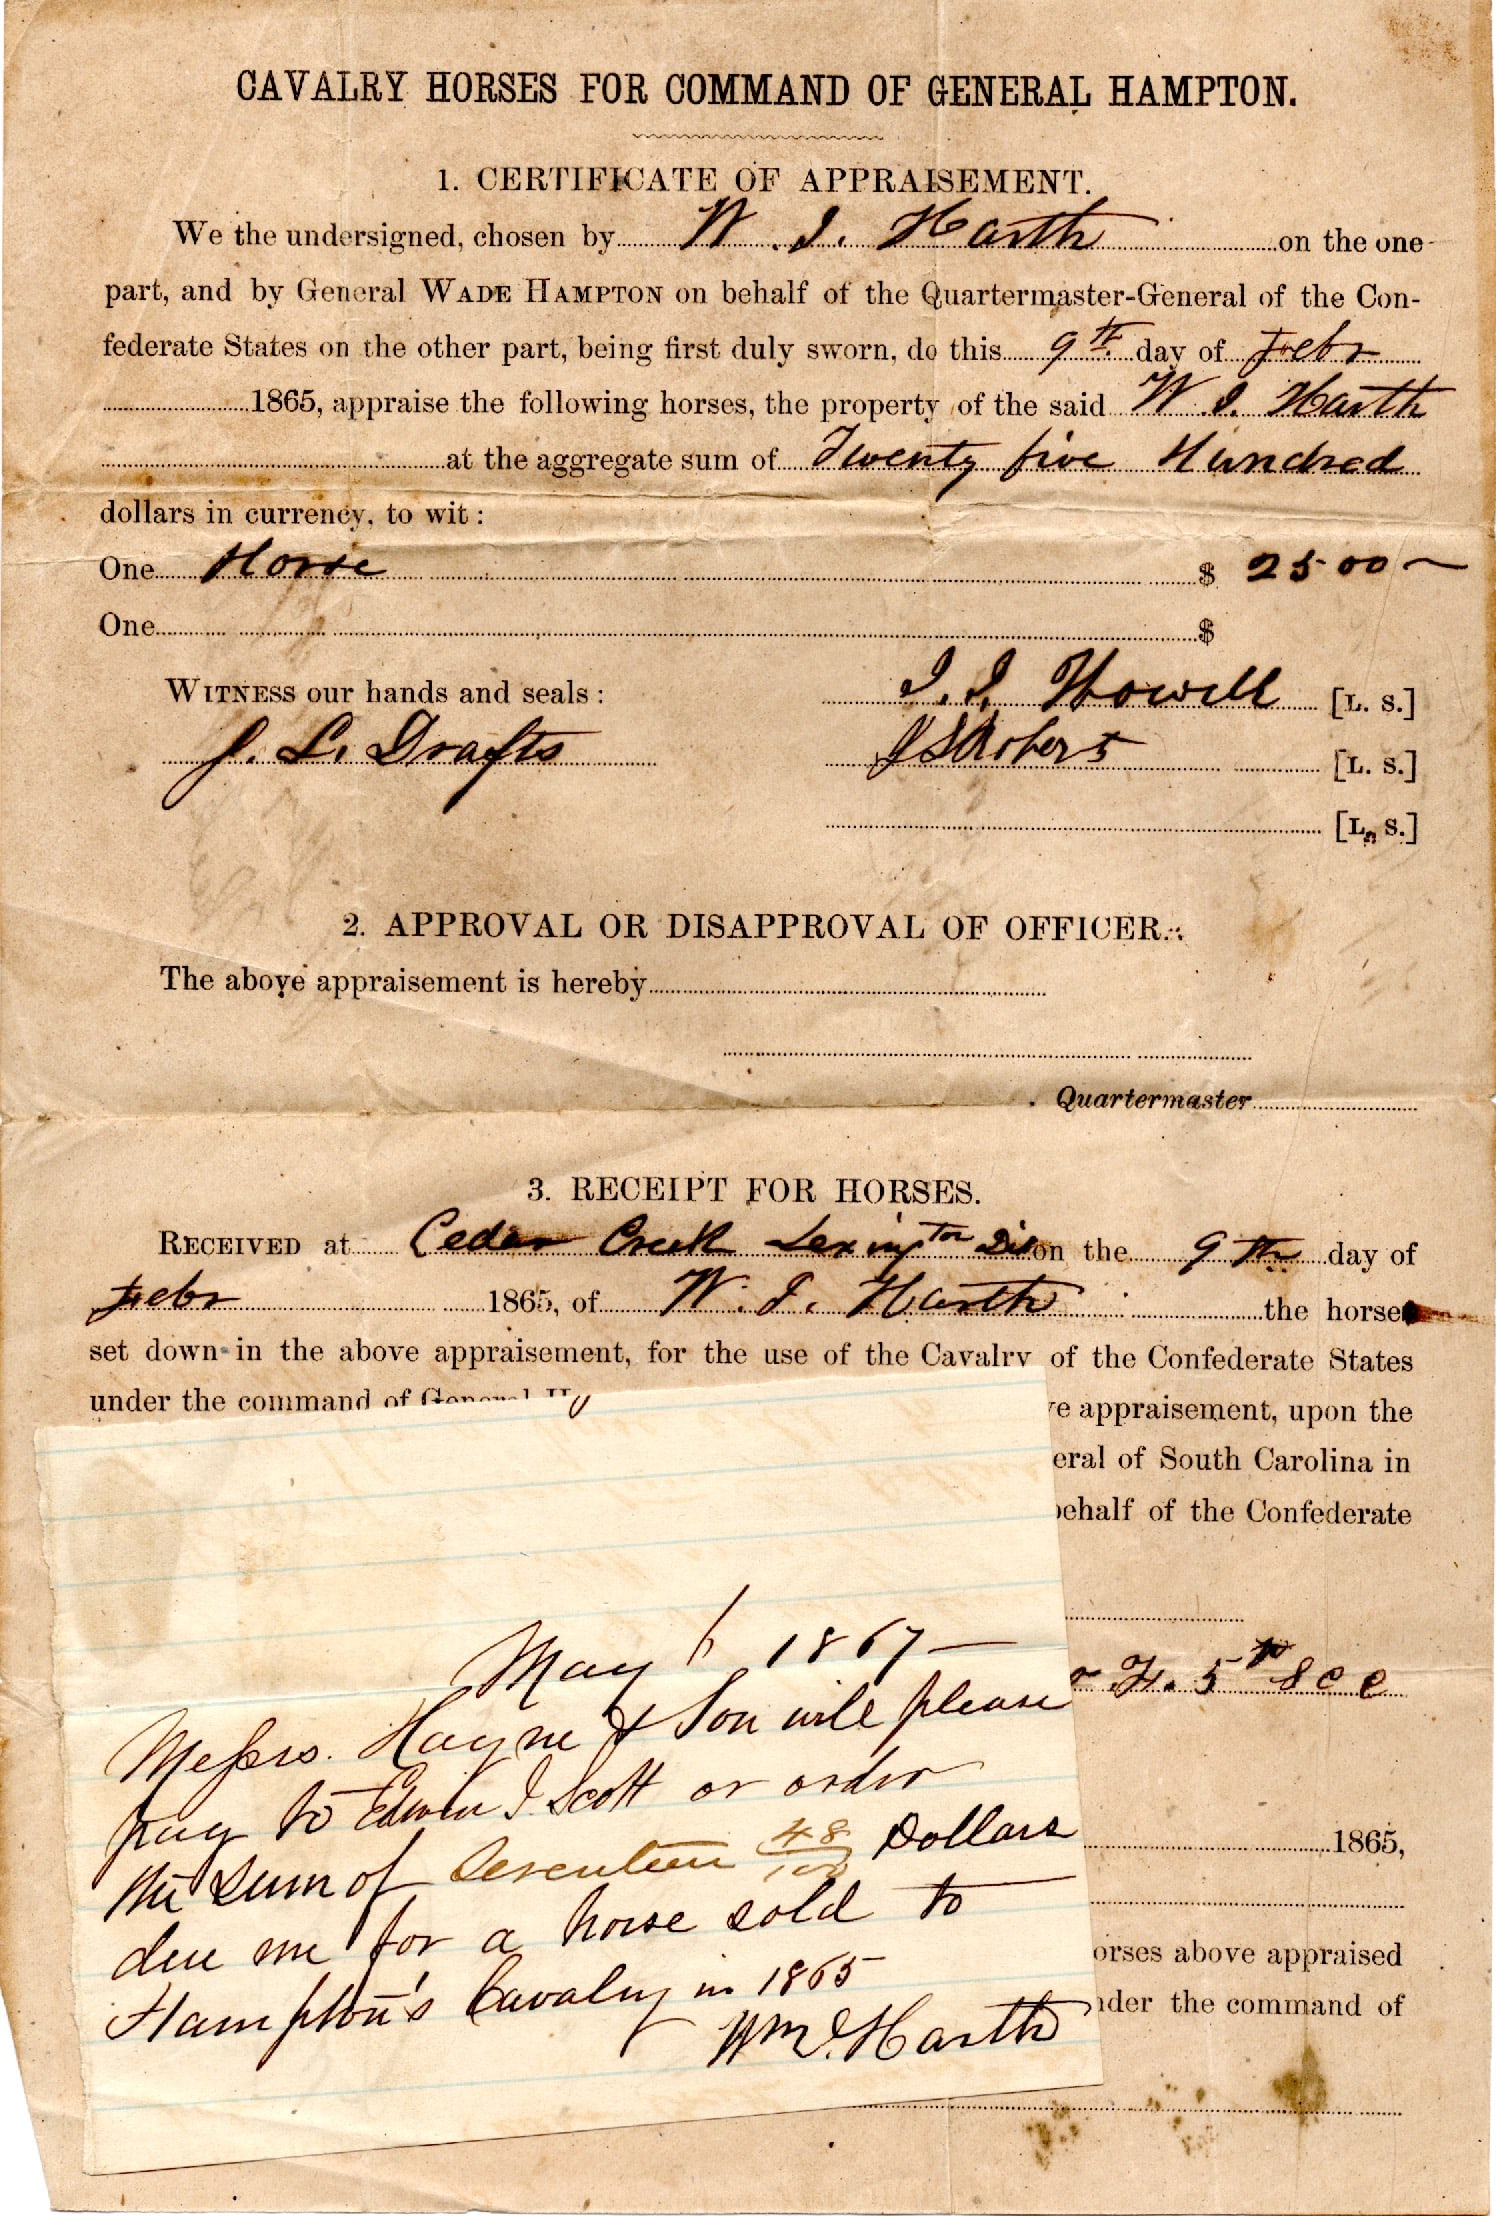 CAVALRY HORSES FOR COMMAND OF GENERAL HAMPTON.
1. CERTIFICATE OF APPRAISEMENT.
We the undersigned, chosen by W. J. Harth on the one
part, and by General WADE HAMPTON on behalf of the Quartermaster-General of the Con-
federate States on the other part, being first duly sworn, do this 9th day of Febr
1865, appraise the following horses, the property of the said W. J. Harth
at the aggregate sum of Twenty five Hundred
dollars in currency, to wit:
One Horse $ 2500
One $
WITNESS our hands and seals: J. J. Howell [L. S.]
J. L. Drafts J S Roberts [L. S.]
[L. S.]
2. APPROVAL OR DISAPPROVAL OF OFFICER.
The above appraisement is hereby
Quartermaster
3. RECEIPT FOR HORSES.
RECEIVED at Cedar Creek Lexington Dis on the 9th day of
Febr 1865, of W. J. Harth the horse
set down in the above appraisement, for the use of the Cavalry of the Confederate States
under the command of General
appraisement, upon the
of South Carolina in
behalf of the Confederate
5th S C C
1865,
above appraised
the command of
May 1867
Messrs. Hayne & Son will please
pay to Edwin J. Scott or order
the sum of Seventeen 48/100 Dollars
due me for a horse sold to
Hampton's Cavalry in 1865
Wm J. Harth